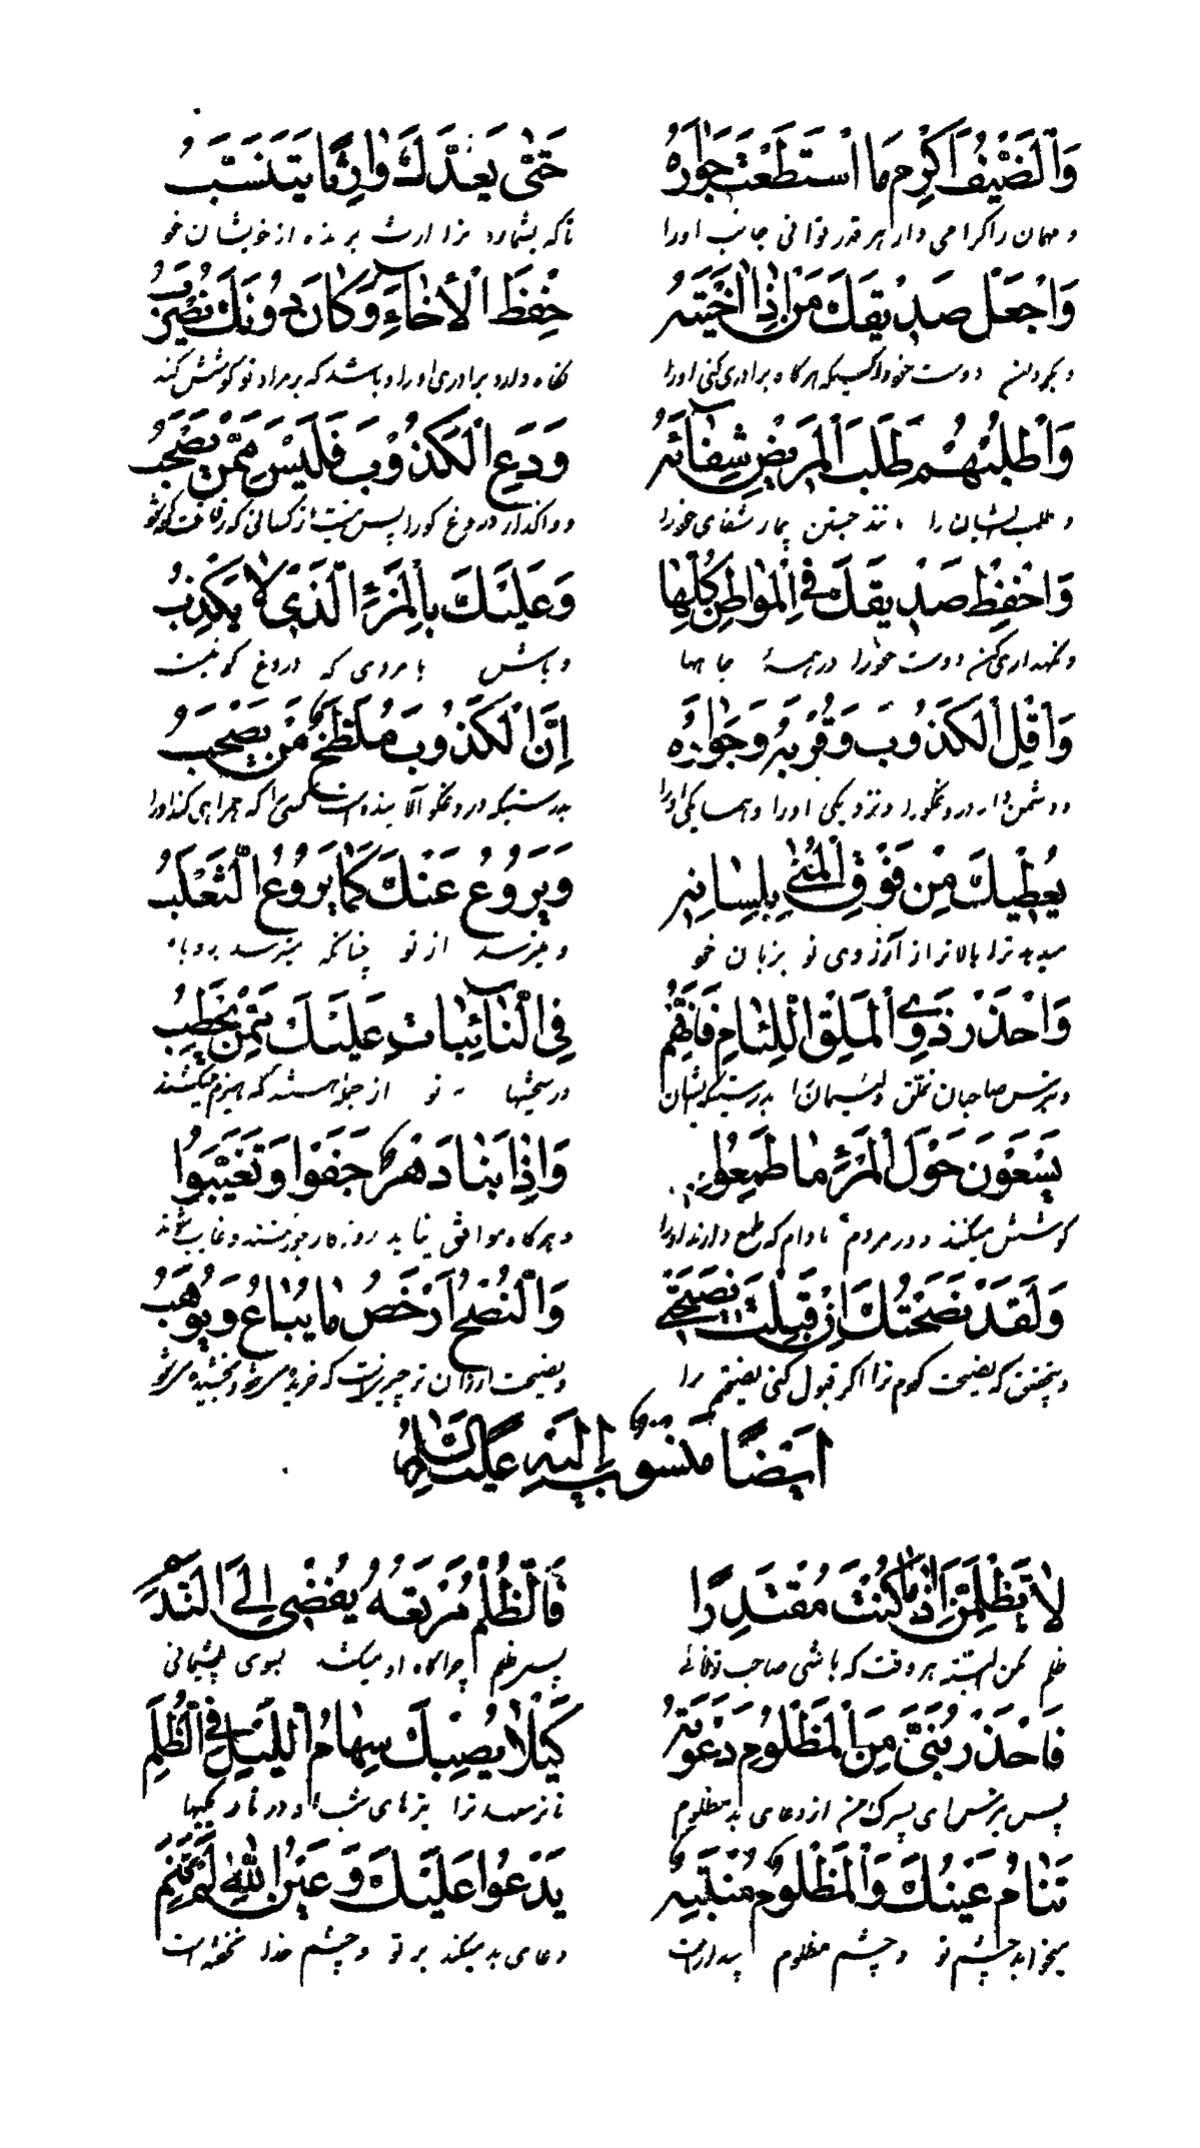 وَالضَّيْفُ اَكْرِمْ مَا اسْتَطَعْتَ جَوٰارَهُ حَتّٰى يَعُدَّكَ وٰارِثًا يَتَنَسَّبُ
و مهمان را گرامی دار هر قدر توانی جانب اورا تا که بشمارد ترا ارث برنده از خویشان خو
وَاجْعَلْ صَدِيْقَكَ مَنْ اِذٰا اٰخَيْتَهُ حِفِظَ الْأِخٰاءَ وَكٰانَ دُونَكَ يَضْرِبُ
و بگردان دوست خود را کسیکه هرگاه برادری کنی اورا نگاه دارد برادری اورا و باشد که بر مراد تو کوشش کند
وَاطْلُبْهُمْ طَلَبَ الْمَرِيْضِ شِفٰائَهُ وَدَعِ الْكَذُوْبَ فَلَيْسَ مِمَّنْ يُصْحَبُ
و طلب ایشان را مانند جستن بیمار شفای خود را و واگذار دروغ گو را پس نیست از کسانی که رفاقت کرده شو
وَاحْفِظْ صَدِيقَكَ فِي الْمَوٰاطِنِ كُلِّهٰا وَعَلَيْكَ بِالْمَرْءِ الَّذِي لٰا يَكْذِبُ
و نگهداری کن دوست خود را در همهٔ جاها و باش با مردی که دروغ گو نیست
وَاقْلِ الْكَذُوبَ وَقُرْبَهُ وَجَوٰارَهُ اِنَّ الْكَذُوبَ مُلَطِّخٌ مَنْ يَصْحَبُ
و دشمن دار دروغگو را و نزدیکی اورا و همسایگی اورا بدرستیکه دروغگو آلاینده است کسی را که همراهی کند اورا
يُعْطِيكَ مِنْ فَوْقِ الْمُنىٰ بِلِسٰانِهِ وَيَرُوغُ عَنْكَ كَمٰا يَرُوغُ الثَّعْلَبُ
میدهد ترا بالاتر از آرزوی تو بزبان خو و میترسد از تو چنانکه میترسد روباه
وَاحْذَرْ ذَوِي الْمَلِقْ اللِّئٰامِ فَاِنَّهُمْ فِي النّٰائِبٰاتِ عَلَيْكَ مِمَّنْ يَحْطِبُ
و بترس صاحبان تملق و لئیمان را بدرستیکه ایشان در سختیها بر تو از جمله هستند که هیزم میکشند
يَسْعَوْنَ حَوْلَ الْمَرْءِ مٰا طَمِعُوا بِهِ وَاِذٰا نَبٰا دَهْرٌ جَفَوْا وَتَغَيَّبُوا
کوشش میکنند در دور مردم مادام که طمع دارند اورا و هرگاه موافق نیاید روزگار جور کنند و غایب شوند
وَلَقَدْ نَصَحْتُكَ اِنْ قَبِلْتَ نَصِيحَتِي وَالنُّصْحُ اَرْخَصُ مٰا يُبٰاعُ وَيُوهَبُ
و بتحقیق که نصیحت کردم ترا اگر قبول کنی نصیحتم را و نصیحت ارزان تر چیزیست که خریده میشود و بخشیده میشو
اَيْضًا مَنْسُوبٌ اِلَيْهِ عَلَيْهِ السَّلَامُ
لٰا تَظْلِمَنَّ اِذٰا مٰا كُنْتَ مُقْتَدِرًا فَالظُّلْمُ مَرْتَعُهُ يُفْضِي اِلَى النَّدَمِ
ظلم مکن البته هر وقت که باشی صاحب توانائی پس ظلم چراگاه او میکشد بسوی پشیمانی
فَاحْذَرْ بُنَيَّ مِنَ الْمَظْلُومِ دَعْوَتَهُ كَيْلٰا يُصِيْبَكَ سِهٰامُ اللَّيْلِ فِي الظُّلَمِ
پس بترس ای پسرک من از دعای بد مظلوم تا نرسد ترا تیرهای شب در تاریکیها
تَنٰامُ عَيْنُكَ وَالْمَظْلُومُ مُنْتَبِهٌ يَدْعُوا عَلَيْكَ وَعَيْنُ اللّٰهِ لَمْ تَنَمِ
میخوابد چشم تو و چشم مظلوم بیدار است دعای بد میکند بر تو و چشم خدا نخفته است